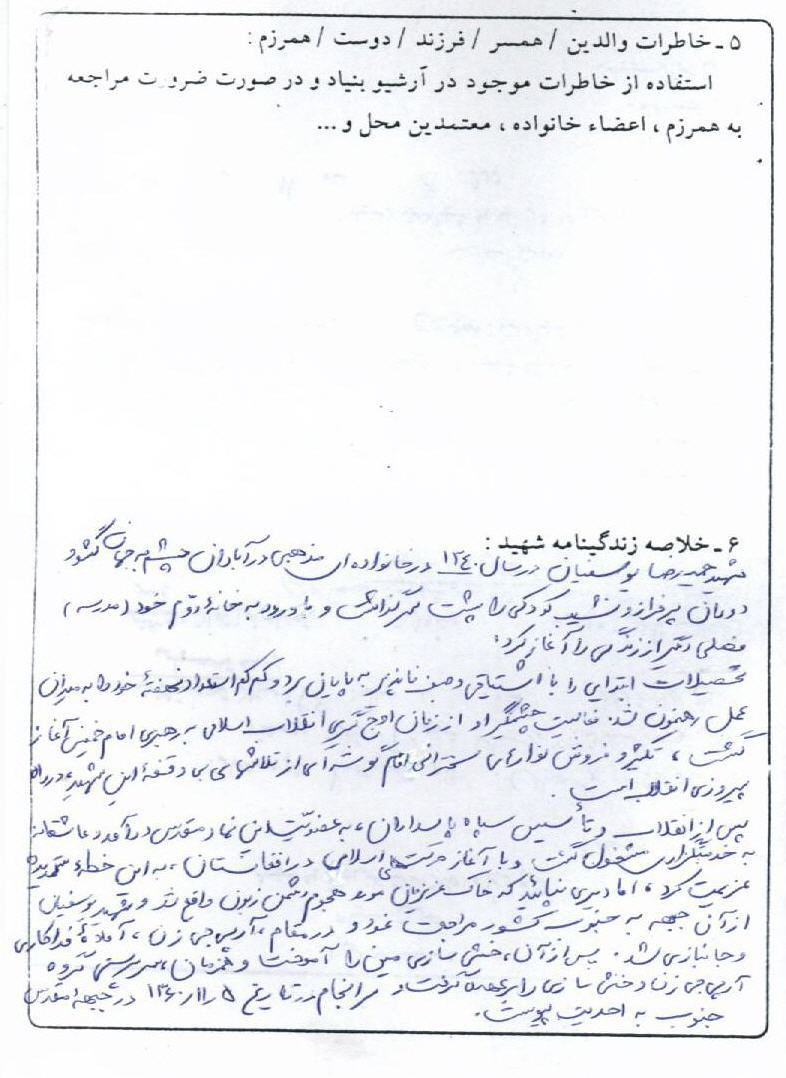 ۵ ـ خاطرات والدین / همسر / فرزند / دوست / همرزم :
استفاده از خاطرات موجود در آرشیو بنیاد و در صورت ضرورت مراجعه
به همرزم ، اعضاء خانواده ، معتمدین محل و ...
۶ ـ خلاصه زندگینامه شهید :
شهید حمیدرضا یوسفیان در سال ۱۳۴۰ در خانواده ای مذهبی در آبادان چشم به جهان گشود
دوران پر فراز و نشیب کودکی را پشت سر گذاشت و با ورود به خانهٔ دوم خود (مدرسه)
فصلی دیگر از زندگی را آغاز کرد.
تحصیلات ابتدایی را با اشتیاقی وصف ناپذیر به پایان برد و کم کم استعداد نهفتهٔ خود را به میدان
عمل رهنمون شد. فعالیت چشمگیر او از زمان اوج گیری انقلاب اسلامی به رهبری امام خمینی آغاز
گشت ، تکثیر و فروش نوارهای سخنرانی امام گوشه ای از تلاشهای بی وقفهٔ این شهید در راه
پیروزی انقلاب است .
پس از انقلاب و تأسیس سپاه پاسداران ، به عضویت این نهاد مقدس درآمد و عاشقانه
به خدمتگزاری مشغول گشت و با آغاز حرکت های اسلامی در افغانستان ، به این خطهٔ ستمدیده
عزیمت کرد ، اما دیری نپائید که خاک عزیزمان مورد هجوم دشمن زبون واقع شد و شهید یوسفیان
از آن جبهه به جنوب کشور مراجعت نمود و در مقام ، آرپی جی زن ، آمادهٔ فداکاری
و جانبازی شد . پس از آن ، خنثی سازی مین را آموخت و همزمان ، سرپرستی گروه
آرپی جی زن و خنثی سازی را بر عهده گرفت و سر انجام در تاریخ ۱۳۶۰/۱۱/۵ در جبههٔ مقدس
جنوب به احدیت پیوست .